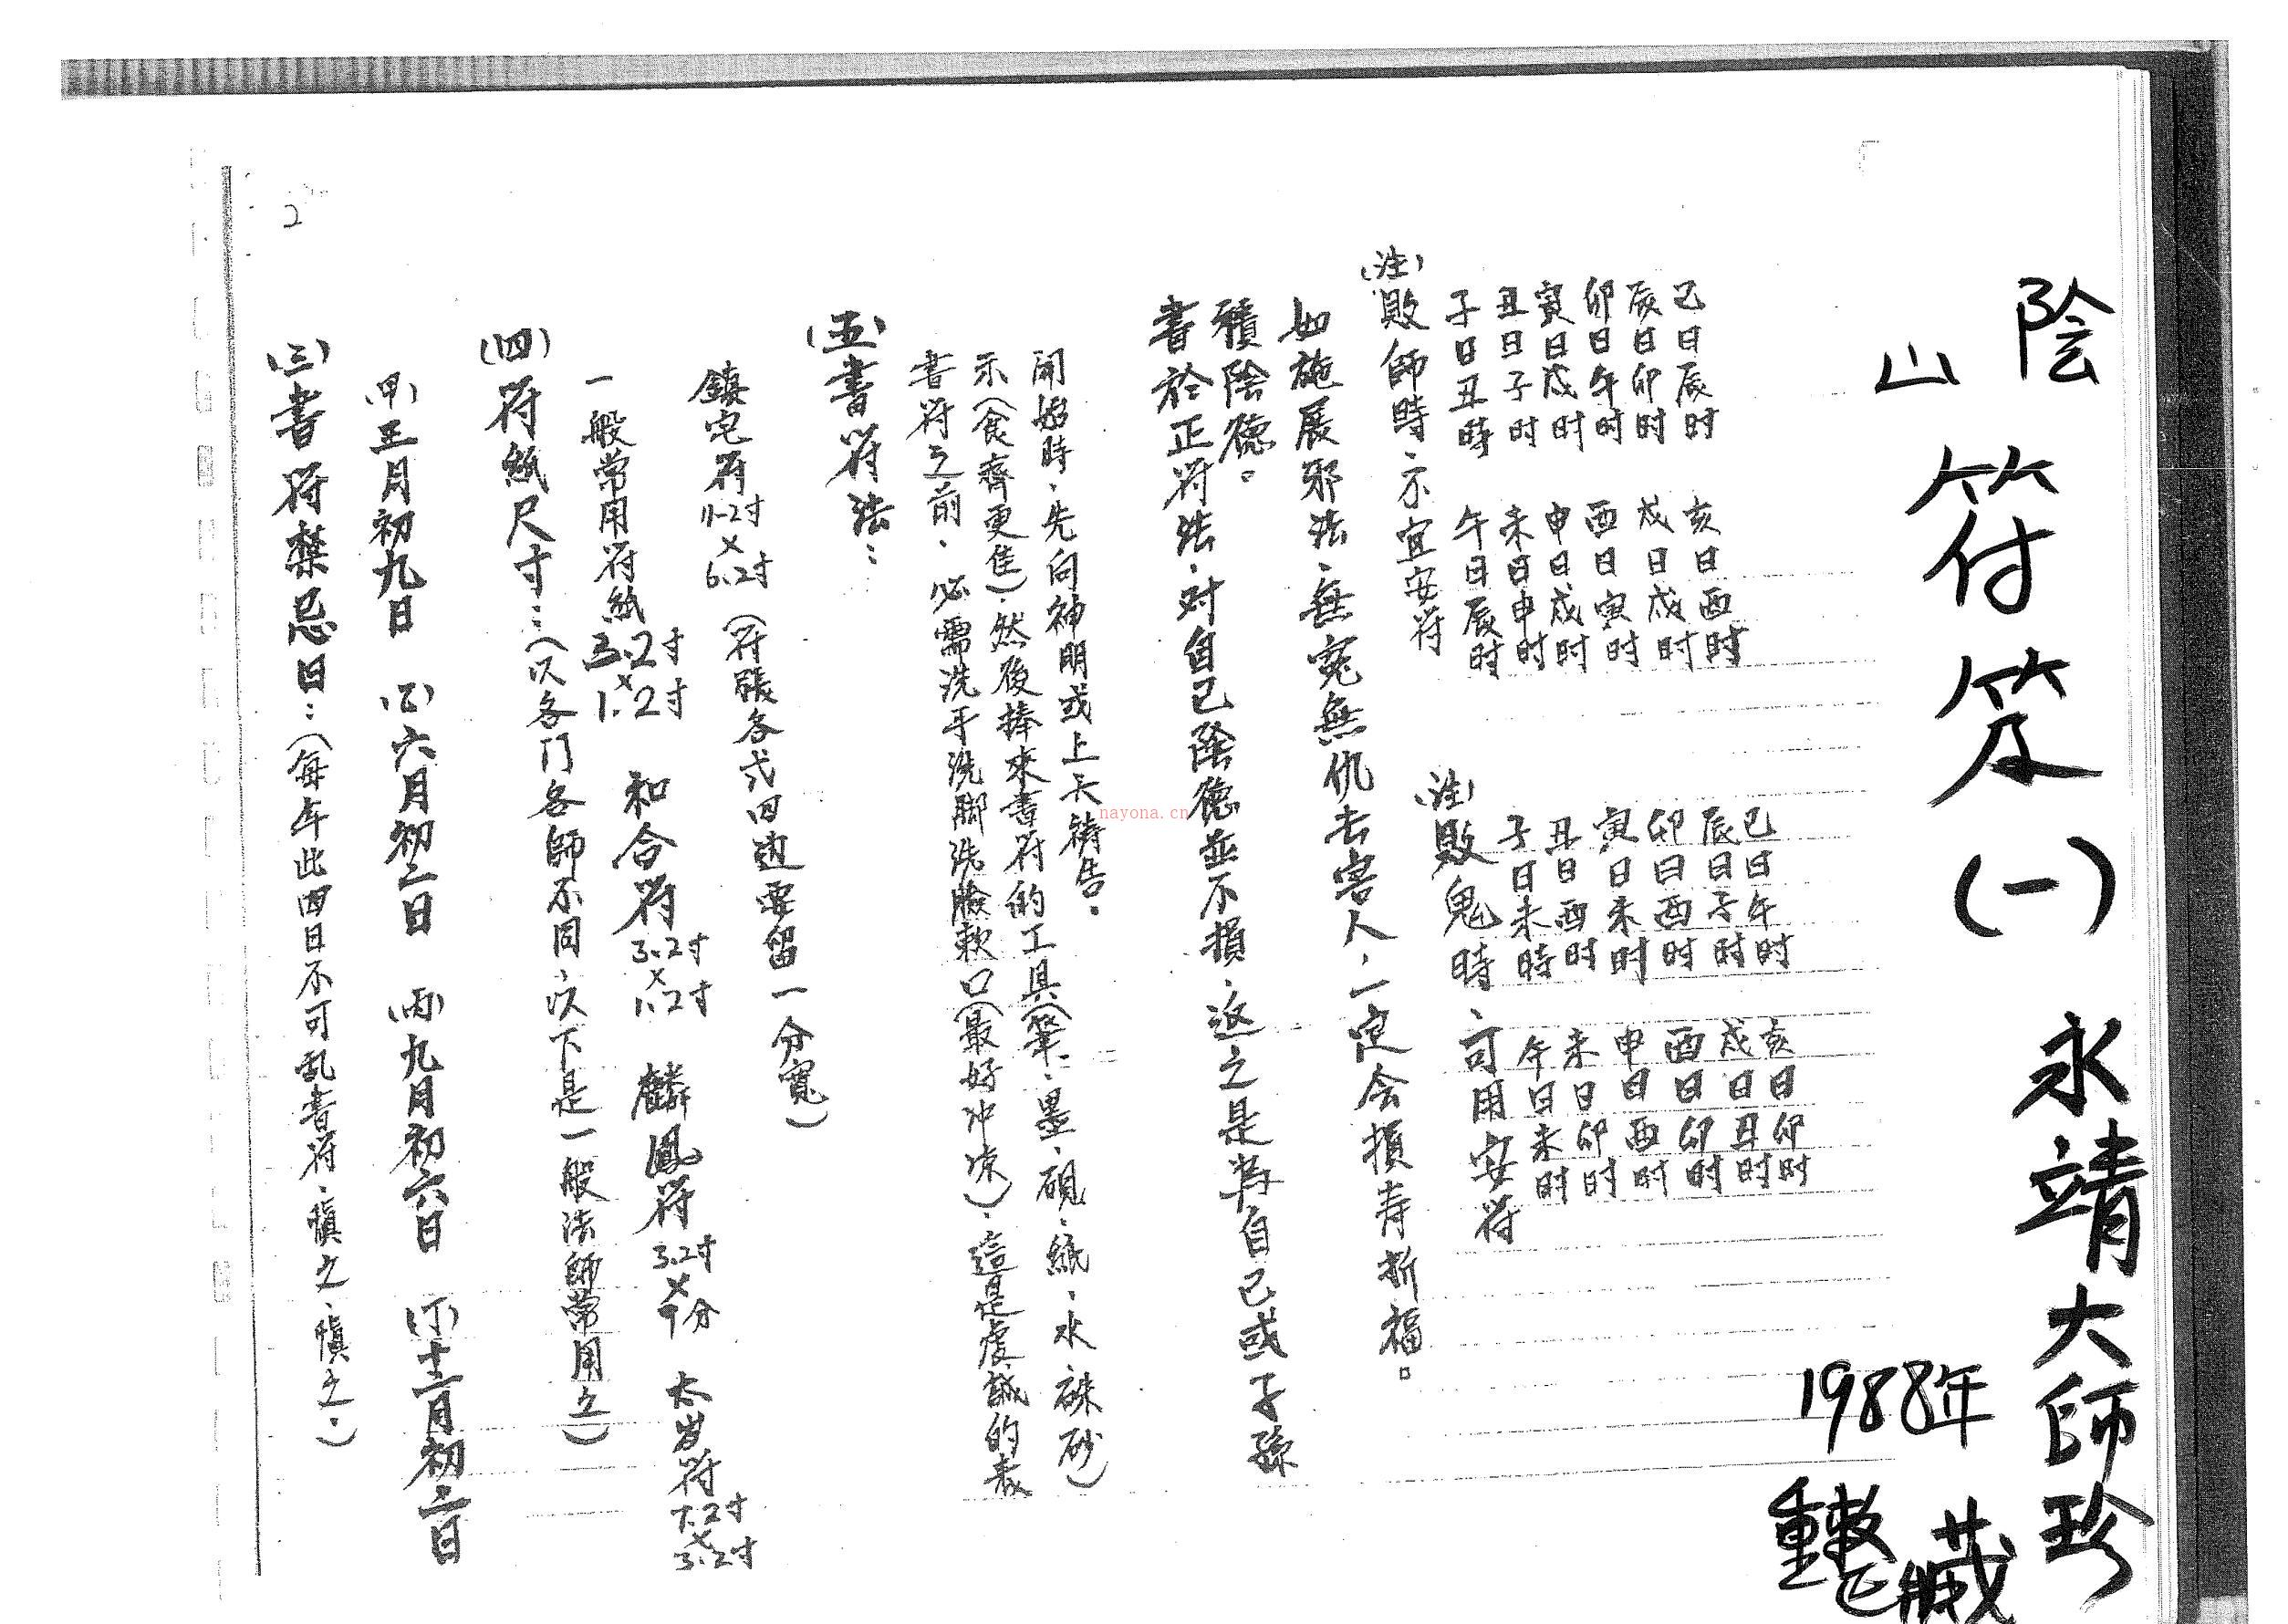 陰山符笈(一) 永靖大師珍藏
1988年重整
2
(三)書符禁忌日：(每年此四日不可乱書符、慎之、慎之。)
(甲)正月初九日 (乙)六月初二日 (丙)九月初六日 (丁)十二月初二日
(四)符紙尺寸：(以各门各師不同、以下是一般法師常用之)
一般常用符紙3.2寸×1.2寸 和合符3.2寸×1.2寸 麟鳳符3.2寸×9分 太岁符7.2寸×3.2寸
鎮宅符11.2寸×6.2寸(符張各式四边要留一分寬)
(五)書符法：
書符之前、必需洗手洗脚洗臉漱口(最好冲凉)、這是虔誠的表
示(食齊更佳)、然後捧來書符的工具(筆、墨、硯、紙、水硃砂)
開始時、先向神明或上天禱告。
書於正符法、对自己陰德並不損、返之是為自己或子孫
積陰德。
如施展邪法、無冤無仇去害人、一定会損寿折福。
(注)敗師時、不宜安符 (注)敗鬼時、可用安符
子日丑時 午日辰时 子日未時 午日未时
丑日子时 未日申时 丑日酉时 未日卯时
寅日戌时 申日戌时 寅日未时 申日酉时
卯日午时 酉日寅时 卯日酉时 酉日卯时
辰日卯时 戌日戌时 辰日子时 戌日丑时
巳日辰时 亥日酉时 巳日午时 亥日卯时
nayona.cn